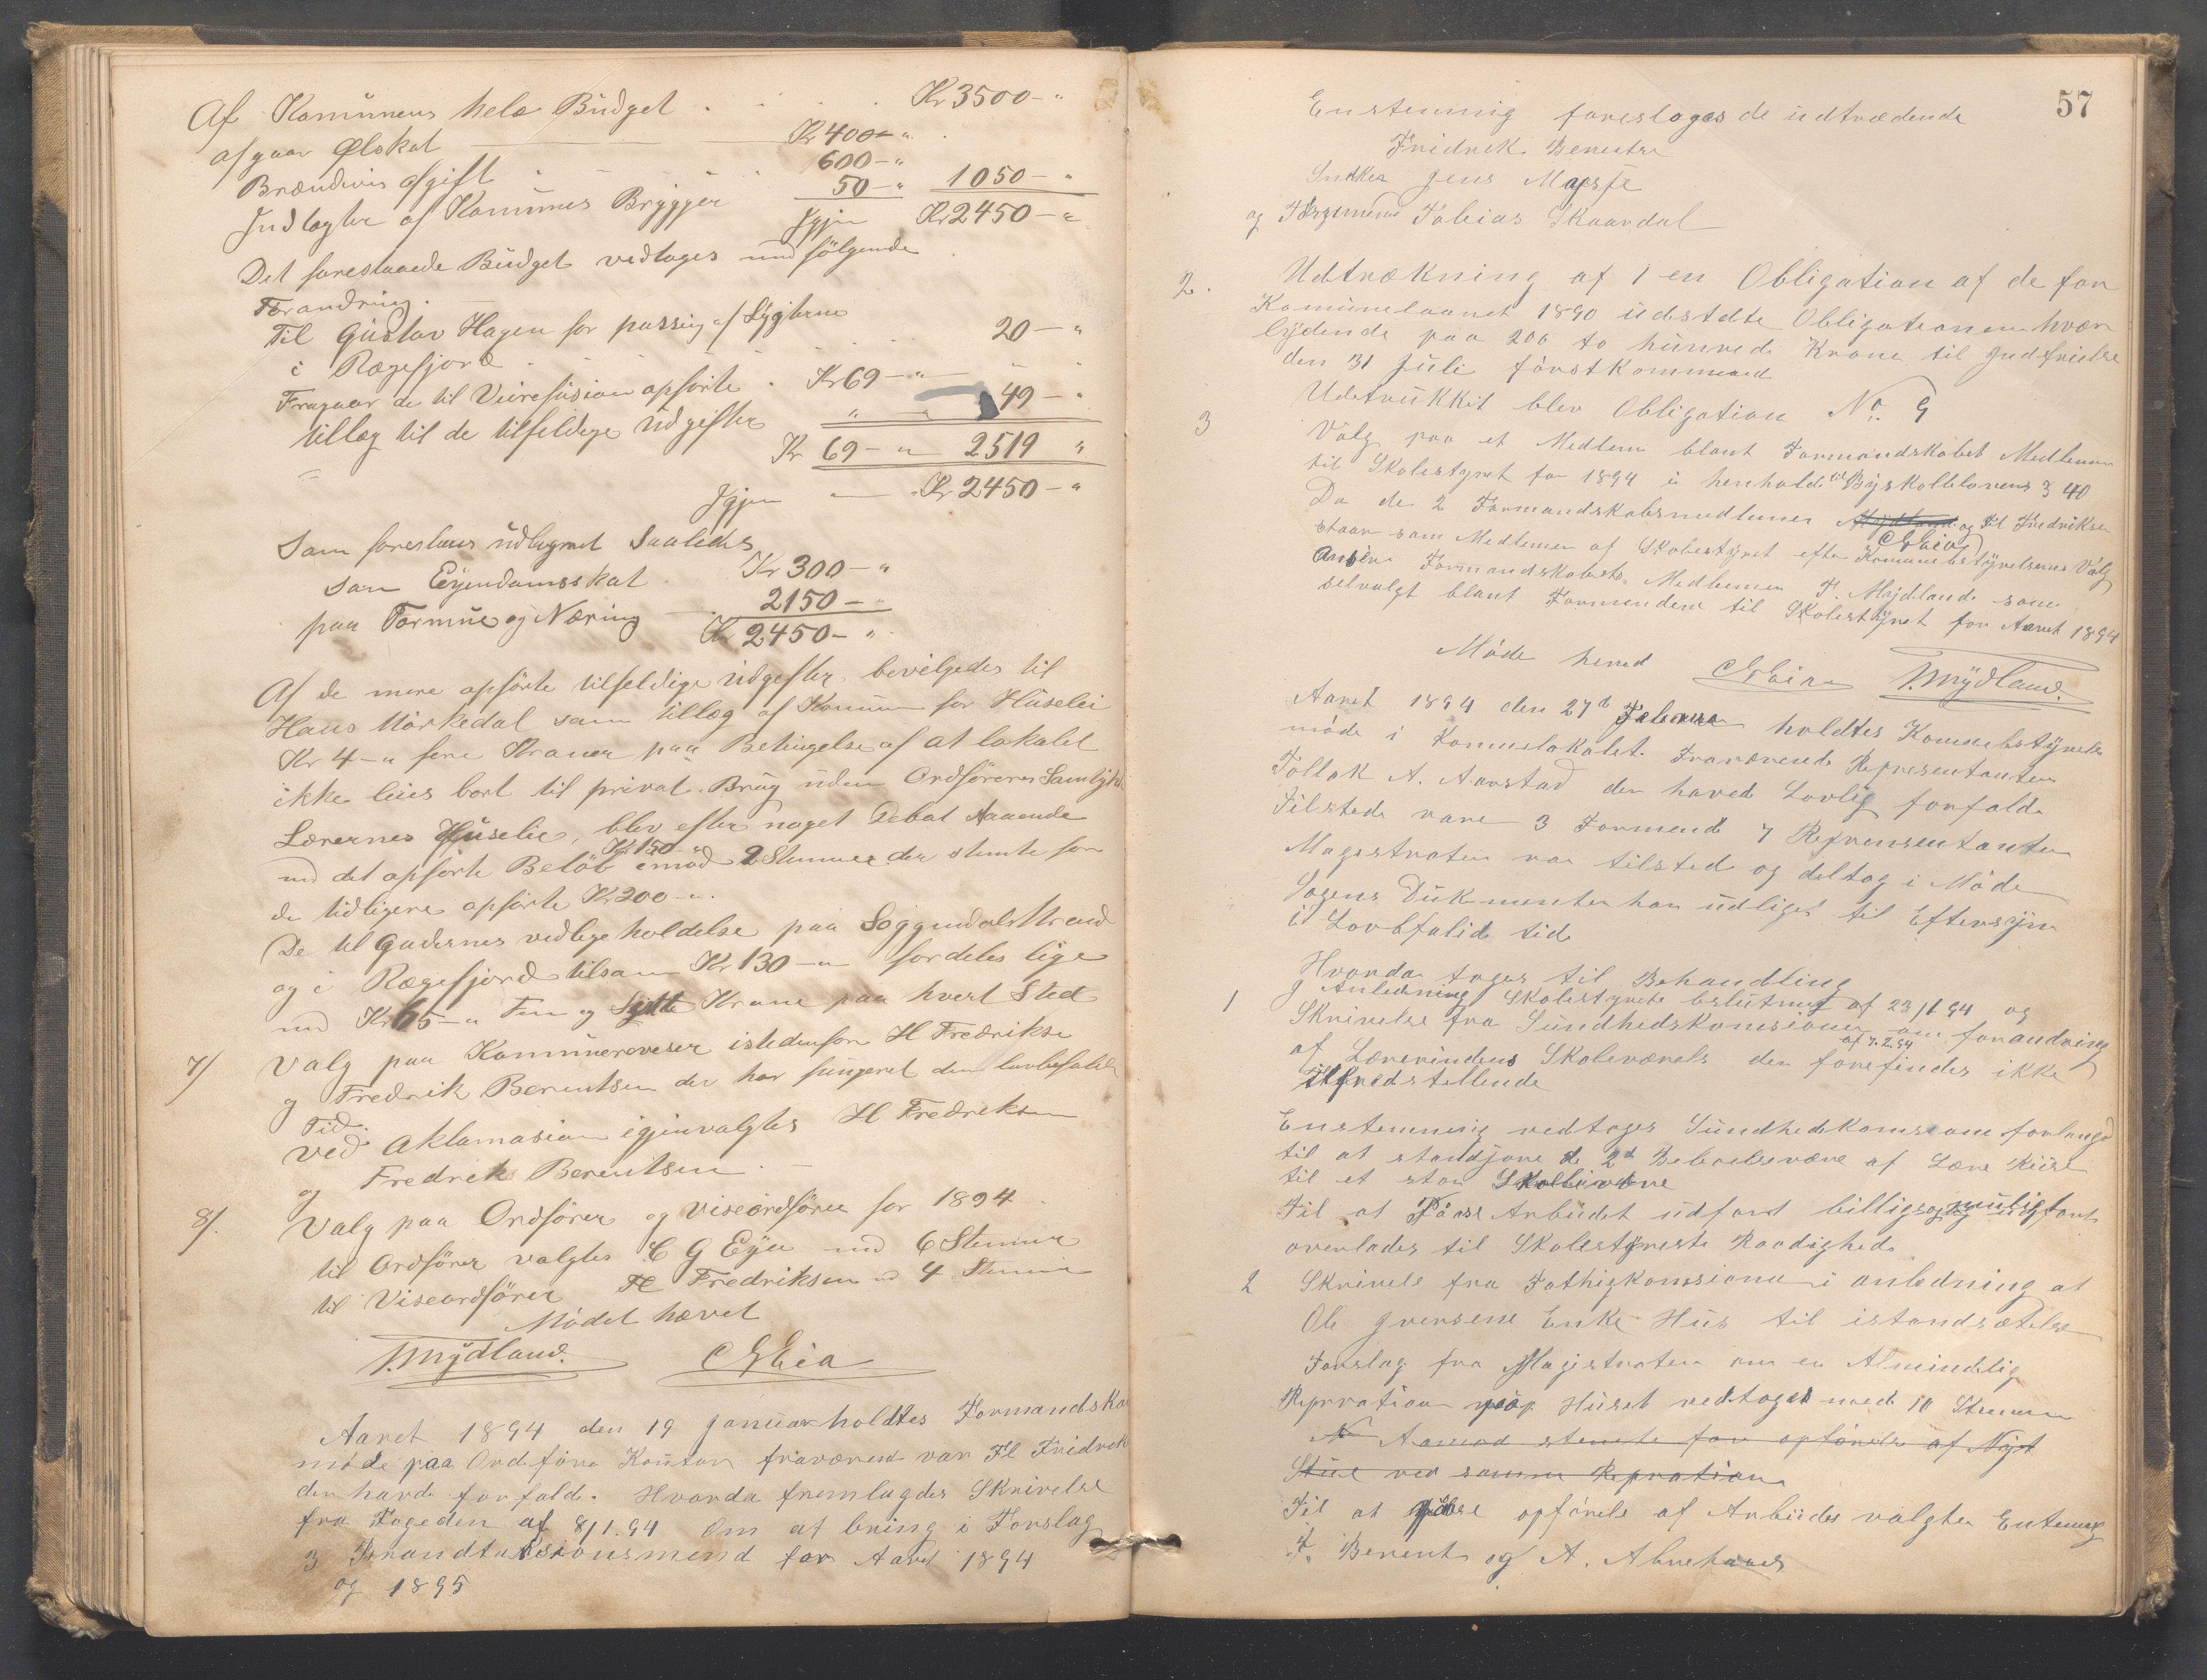 Af Komunens hele Budget . . . Kr 3500 - "
afgaar Ølskat Kr 400 - "
Brændevins afgift 600 - "
Indtægter af Komunes Brygger 50 - " 1050 - "
Igjen Kr 2450 - "
Det foreslaaede Budget vedtages med følgende
Forandring.
Til Gustav Hagen for passing af Lygterne
i Rægefjord . . . 20 - "
Fragaar de til Veirefusion opførte . Kr 69 - "
tillæg til de tilfeldige Udgifter " - " 49 - "
Kr 69 - " 2519 "
Igjen - Kr 2450 - "
Som foreslaaes udlignet Saaledes
som Eyendomsskat . Kr 300 - "
paa Formue og Næring 2150 - "
Kr 2450 - "
Af de mere opførte tilfeldige Udgifter bevilgedes til
Hans Mørkedal som tillæg af Komun for Huselei
Kr 4 - " fire Kroner paa Betingelse af at lokalet
ikke leies bort til privat Brug uden Ordførerens Samtykke
Lærernes Huselie, blev efter noget Debat Staaende
Kr 150 - "
med det opførte Beløb imod 2 Stemmer der stemte for
de tidligere opførte Kr 200 - "
De til Gadernes vedligeholdelse paa Soggendals Strand
og i Rægefjord tilsam Kr 130 - " fordeles lige
med Kr 65 - " Fem og Sytti Krone paa hvert Sted
7/ Valg paa Komunereveser istedenfor H Fredrikse
og Fredrik Berentsen der har fungeret den lovbefalede
Tid.
Ved Aklamasion igjenvalgtes H Fredriksen
og Fredrek Berentsen .
8/. Valg paa Ordfører og Viseordfører for 1894
til Ordfører valgtes C G Eyie med 6 Stemmer
til Viseordfører H Fredriksen m 4 Stemme
Mødet hævet
T. Mydland. C G Eia
Aaret 1894 den 19 Januar holdtes Formandska
møde paa Ordføre Kontor fraværend var H Fridrek
der havde forfald. Hvorda fremlagdes Skrivelse
fra Fogeden af 8/1.94 Om at bring i Forslag
3 Brandtaksionsmend for Aaret 1894
og 1895
57
Enstemmig foresloges de udtrædende
Fridrek Berntse
Snekker Jens
og Tobias Skaardal
2. Udtrækning af 1 en Obligation af de for
Komunelaanet 1890 udstedte Obligationen hvor
lydende paa 200 to hunrede Krone til Indfrielse
den 31 Juli førstkommend
Udetrukkit blev Obligation No 9
3 Valg paa et Medlem blant Formandskabet Medlemm
til Skolestyret for 1894 i henhold til Byskolelovens § 40
Da de 2 Formandskabsmedlemer Mydland og H Fredriksen
C G Eia
staar som Medlemer af Skolestyret efter Komunebstyrelsens Valg
Formandskabets Medlemmer T. Mydland som
selvalgt blant Formendene til Skolestyret for Aaret 1894
Møde heved C G Eia T. Mydland.
Aaret 1894 den 27d Februar holdtes Komunebstyrels
møde i Komunelokalet. Fraværende Representanter
Tollak A. Aarstad der haved Lovlig forfald
Tilstede vare 3 Formend 7 Reprensentanter
Magistraten var tilsted og deltog i Møde
Sagens Dukumenter har udliget til Eftersyn
i Lovbfalid tid
Hvorda toges til Behandling
1 J Anledning Skolestyrets beslutning af 23/1 94 og
Skrivelse fra Sundhedskomsionen om forandring
af 7.2.94
af Lærerindens Skoleværels der forefindes ikke
tilfredstellende
Enstemmig vedtages Sundhedskomsione forlangd
til at standjøre de 2d Beboelsevære af Lære
til et stor
Til at Arbudet udført billigst mulig
overlades til Skolestyrests Raadighed
2 Skrivels fra Fathigkomsionen i anledning at
Ole Iversens Enke Hus til istandsætelse
Forslag fra Magistraten om en Almindelig
Repration paa Huset vedtoges med 10 Stemmer
Aamod stemte for opførels af Nyt
Stue ved samme Repration
Til at opførels af Arbudes valgtes Entemig
F. Berent og A. Abrehames